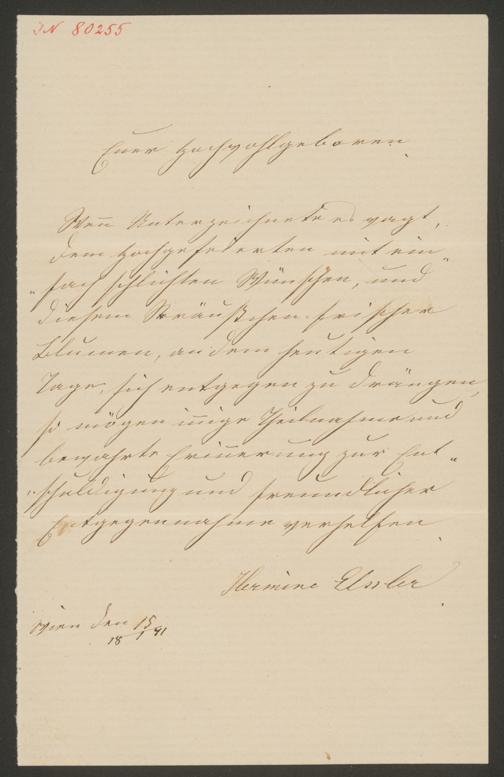 IN 80255
Euer Hochwohlgeboren
Wen̄ Unterzeichnete es wagt,
dem Hochgefeierten mit ein„
„fach schlichten Wünschen, und
diesem Sträußchen frischer
Blumen, an dem heutigen
Tage, sich entgegen zu drängen,
so mögen in̄ige Theilnahme und
bewahrte Erin̄erung zur Ent„
„schuldigung und freundlicher
Entgegennahme verhelfen.
Hermine Elssler
Wien den 15/1
18 91